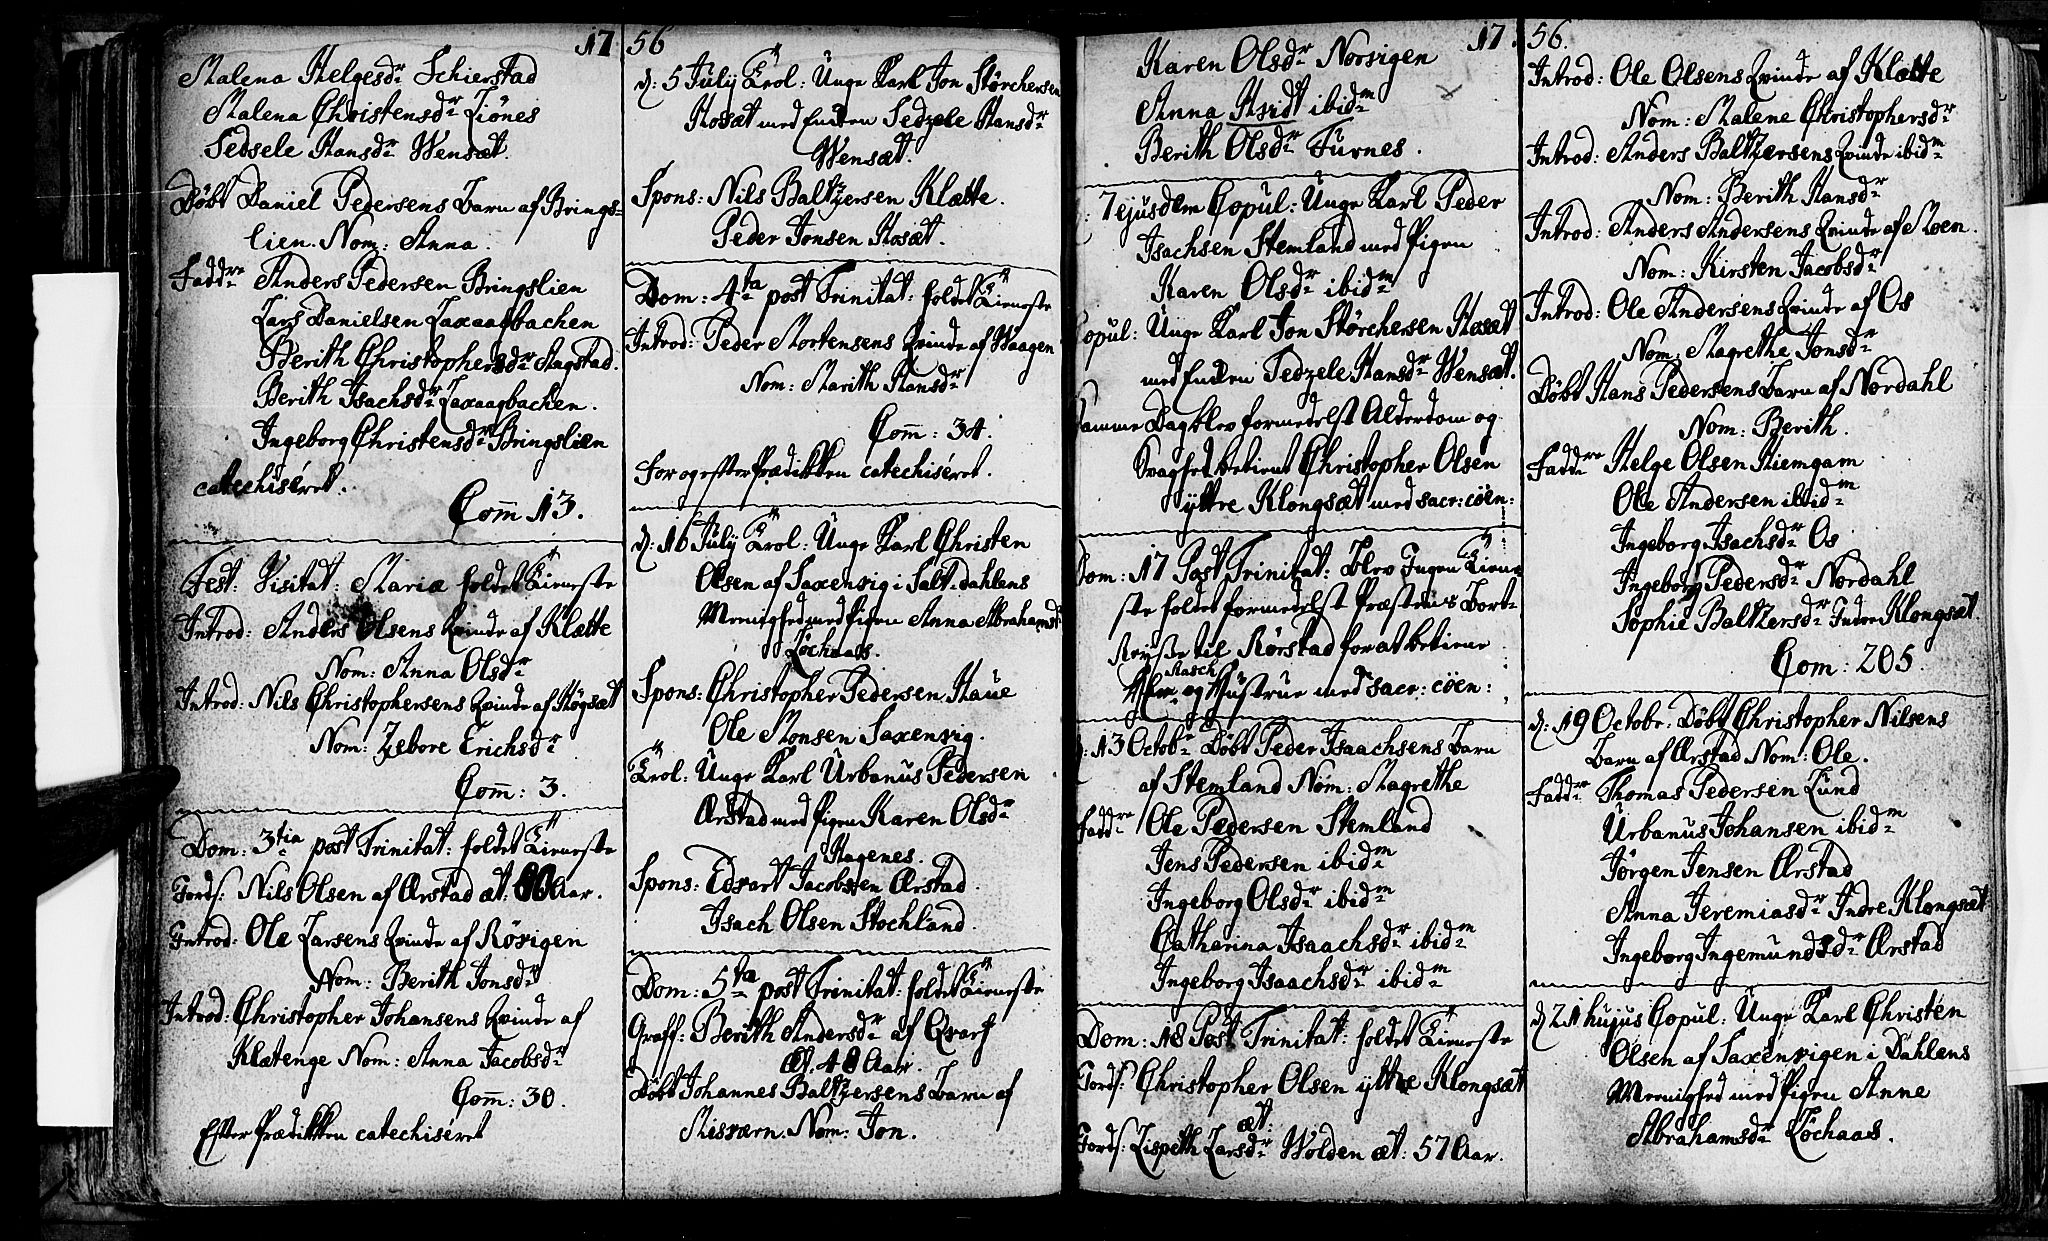 17
Malena Helgesdr Schierstad
Malena Christensdr Ziönes
Sedsele Hansdr Wensæt.
Döbt Daniel Pedersens Barn af Brings-
lien. Nom: Anna.
Faddre Anders Pedersen Bringslien
Lars Danielsen Laxaagbachen
Berith Christophersdr Hagstad.
Berith Isachsdr Laxaagbachen.
Ingeborg Christensdr Bringslien
catechiséret.
Com̄ 13.
Fest: Visitat: Mariæ holdet Tieneste
Introd: Anders Olsens Qvinde af Klætte
Nom: Anna Olsdr
Introd: Nils Christophersens Qvinde af Høgsæt
Nom: Zebore Erichsdr
Com̄: 3.
Dom: 3tia post Trinitat: holdet Tieneste
Jords: Nils Olsen af Ærstad æt: Aar.
Introd: Ole Larsens Qvinde af Røsvigen
Nom: Berith Jonsdr
Introd: Christopher Johansens Qvinde af
Klætenge Nom: Anna Jacobsdr
Com̄: 30.
Efter Prædikken catechiséret
56
d: 5 July Trol: Unge Karl Jon Størchersen
Hosæt med Encken Sedzele Hansdr
Wensæt.
Spons: Nils Baltzersen Klætte.
Peder Jonsen Hosæt.
Dom: 4ta post Trinitat: holdet Tieneste
Introd: Peder Mortensens Qvinde af Waagen
Nom: Marith Hansdr
Com̄: 34.
For og efter Prædikken catechiséret.
d: 16 July Trol: Unge Karl Christen
Olsen af Saxensvig i Salt-dahlens
Menighed med Pigen Anna Abrahamsdr
Løchaas.
Spons: Christopher Pedersen Haue
Ole Monsen Saxensvig.
Trol: Unge Karl Urbanus Pedersen
Ærstad med Pigen Karen Olsdr
Hagenes.
Spons: Edvart Jacobsen Ærstad.
Isach Olsen Stochland.
Dom: 5ta post Trinitat: holdet Tieneste
Graff: Berith Andersdr af Qvarf
Æt. 48 Aar.
Döbt Johannes Baltzersens Barn af
Misværn. Nom: Jon.
17.
Karen Olsdr Norsigen
Anna Hvidt ibidm
Berith Olsdr Furnes.
: 7 ejusdem Copul: Unge Karl Peder
Isachsen Stemland med Pigen
Karen Olsdr ibidm
Copul: Unge Karl Jon Størchersen Hosæt
med Encken Sedzele Hansdr Wensæt.
Samme Dag blev formedelst Alderdom og
Svaghed betient Christopher Olsen
yttre Klongsæt med sacr: cöen:
Dom: 17 Post Trinitat: blev Ingen Tiene-
ste holdet formedelst Præstens Bort-
Reyse til Rørstad for at betiene
Hasch
Hr og Hustrue med sacr: cöen:
d: 13 Octobr Döbt Peder Isaachsens Barn
af Stemland Nom: Magrethe
Faddre Ole Pedersen Stemland
Jens Pedersen ibidm
Ingeborg Olsdr ibidm
Catharina Isaachsdr ibidm
Ingeborg Isaachsdr ibidm
Dom: 18 Post Trinitat: holdet Tieneste
Jords: Christopher Olsen yttre Klongsæt
æt:
Jords: Lispeth Larsdr Wolden æt: 57 Aar.
56.
Introd: Ole Olsens Qvinde af Klætte
Nom: Malene Christophersdr
Introd: Anders Baltzersens Qvinde ibidm
Nom: Berith Hansdr
Introd: Anders Andersens Qvinde af Moen.
Nom: Kirsten Jacobsdr
Introd: Ole Andersens Qvinde af Os
Nom: Magrethe Jonsdr
Döbt Hans Pedersens Barn af Nordahl
Nom: Berith.
Faddre Helge Olsen Hiemgam
Ole Andersen ibidm
Ingeborg Isachsdr Os.
Ingeborg Pedersdr Nordahl
Sophie Baltzersdr Indre Klongsæt.
Com: 205.
d: 19 Octobr: Döbt Christopher Nilsens
Barn af Ærstad Nom: Ole.
Faddr Thomas Pedersen Lund
Urbanus Johansen ibidm
Jörgen Jensen Ærstad
Anna Jeremiasdr Indre Klongsæt
Ingeborg Ingemundsdr Ærstad
d 21 hujus Copul: Unge Karl Christen
Olsen af Saxensvigen i Dahlens
Menighed med Pigen Anne
Abrahamsdr Løchaas.